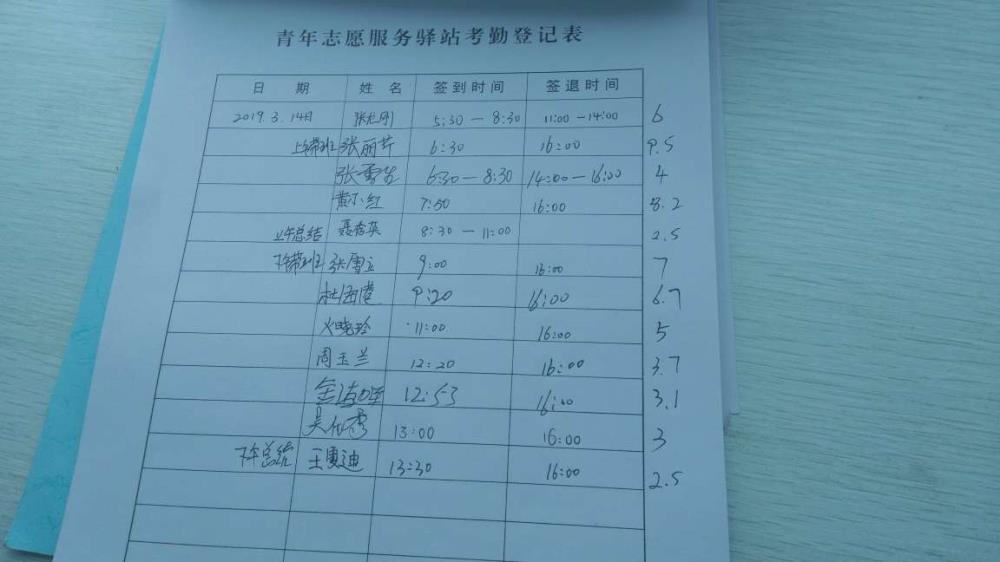 青年志愿服务驿站考勤登记表
日 期 姓 名 签到时间 签退时间
2019.3.14日 5:30 — 8:30 11:00 — 14:00 6
上午带班 张丽芹 6:30 16:00 9.5
6:30 — 8:30 14:00 — 16:00 4
黄小红 7:50 16:00 8.2
上午总结 聂春英 8:30 — 11:00 2.5
下午带班 张雪立 9:00 16:00 7
杜海滢 9:20 16:00 6.7
火晓玲 11:00 16:00 5
周玉兰 12:20 16:00 3.7
12:53 16:00 3.1
13:00 16:00 3
下午总结 王夏迪 13:30 16:00 2.5